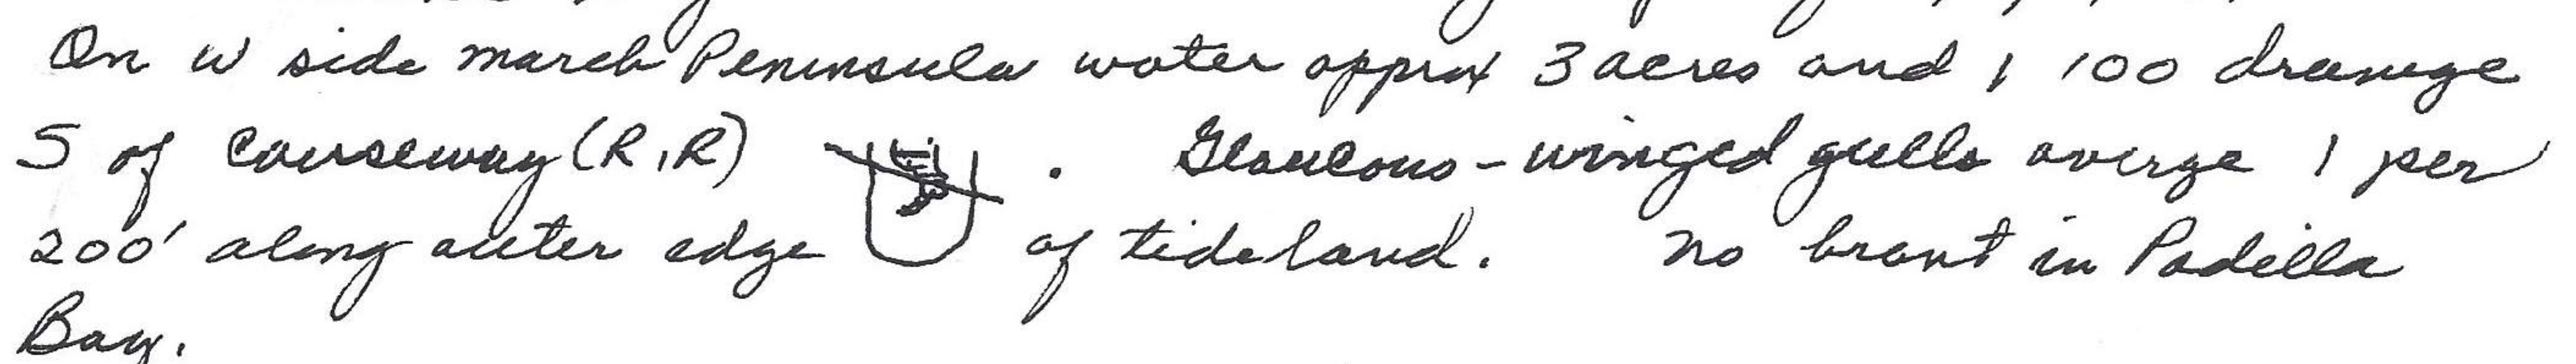 On W side March Peninsula water approx 3 acres and 1 100 drainge
S of Causeway (R.R) . Glaucous-winged gulls averge 1 per
200' along outer edge of tideland. No brant in Padilla
Bay.